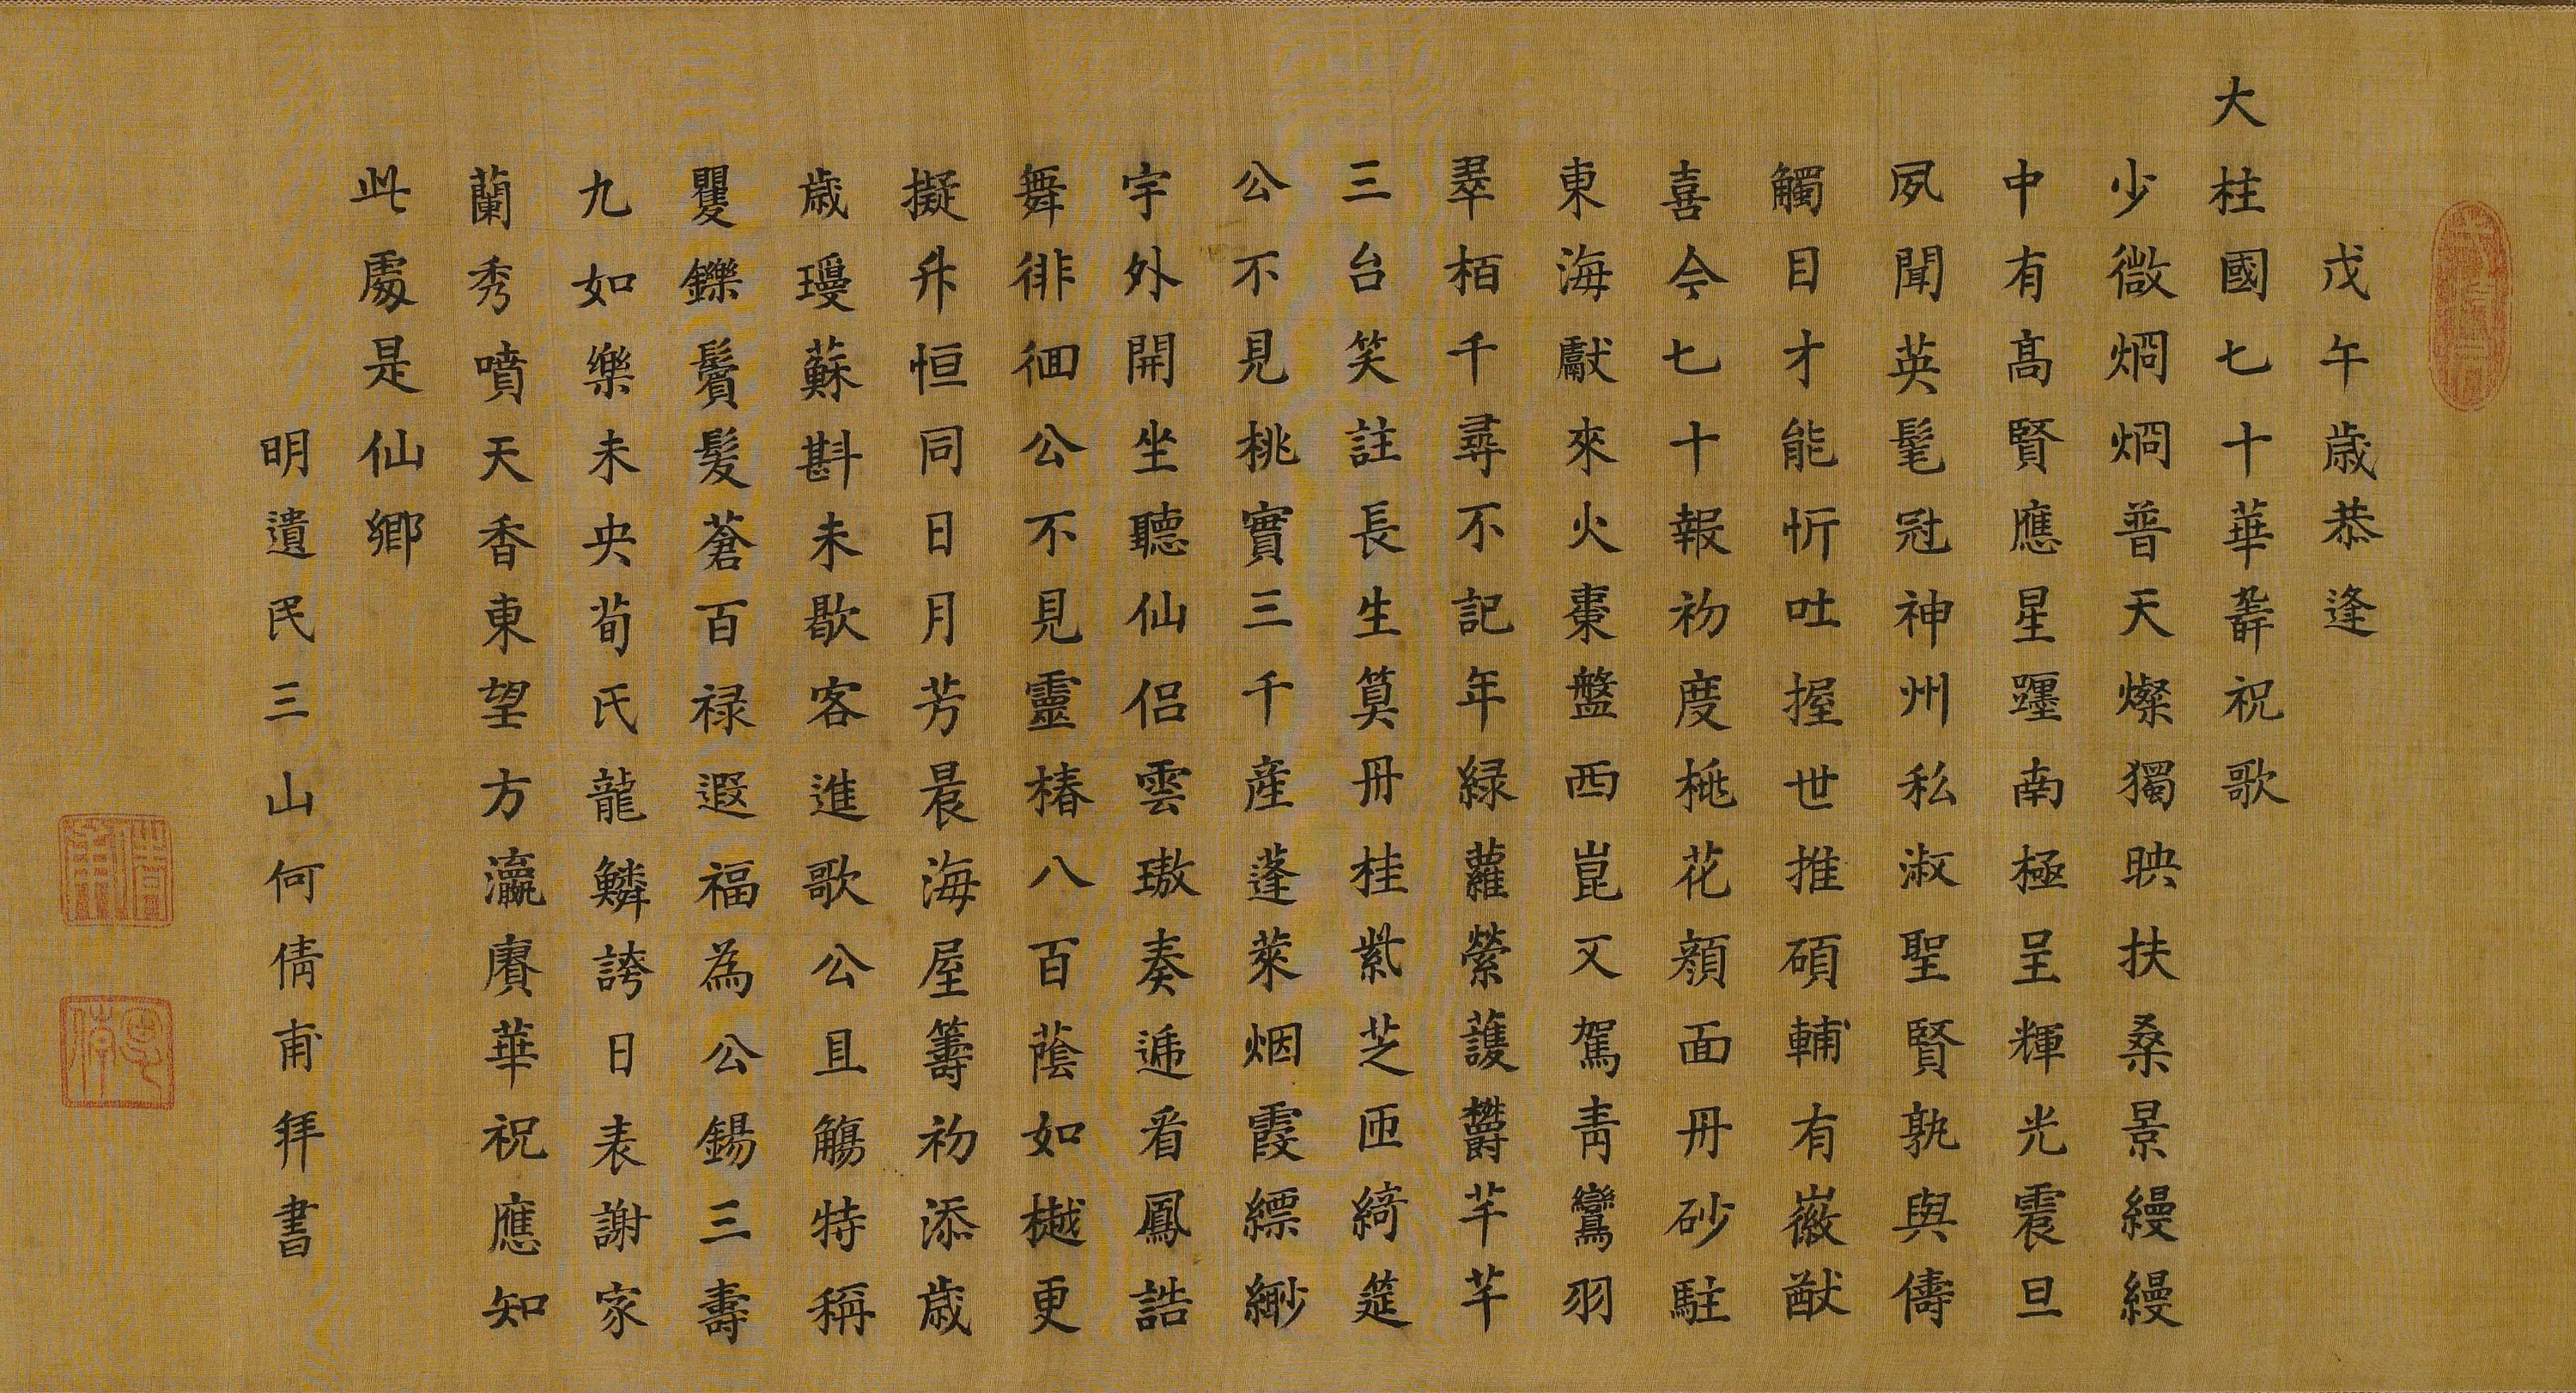 戊午歲恭逢
大柱國七十華壽祝歌
少微烱烱普天燦獨映扶桑景縵縵
中有高賢應星躔南極呈輝光震旦
夙聞英髦冠神州私淑聖賢孰與儔
觸目才能忻吐握世推碩輔有嶶猷
喜今七十報初度桃花顏面丹砂駐
東海獻來火棗盤西崑又駕青鸞羽
翠栢千尋不記年綠蘿縈護欝芊芊
三台笑註長生算丹桂紫芝匝綺筵
公不見桃實三千產蓬萊烟霞縹緲
宇外開坐聽仙侶雲璈奏遞看鳳誥
舞徘徊公不見靈椿八百蔭如樾更
擬升恒同日月芳晨海屋籌初添歲
歲瓊蘇斟未歇客進歌公且觴特稱
矍鑠鬢髮蒼百祿遐福為公錫三壽
九如樂未央荀氏龍鱗誇日表謝家
蘭秀噴天香東望方瀛賡華祝應知
此處是仙鄉
明遺民三山何倩甫拜書